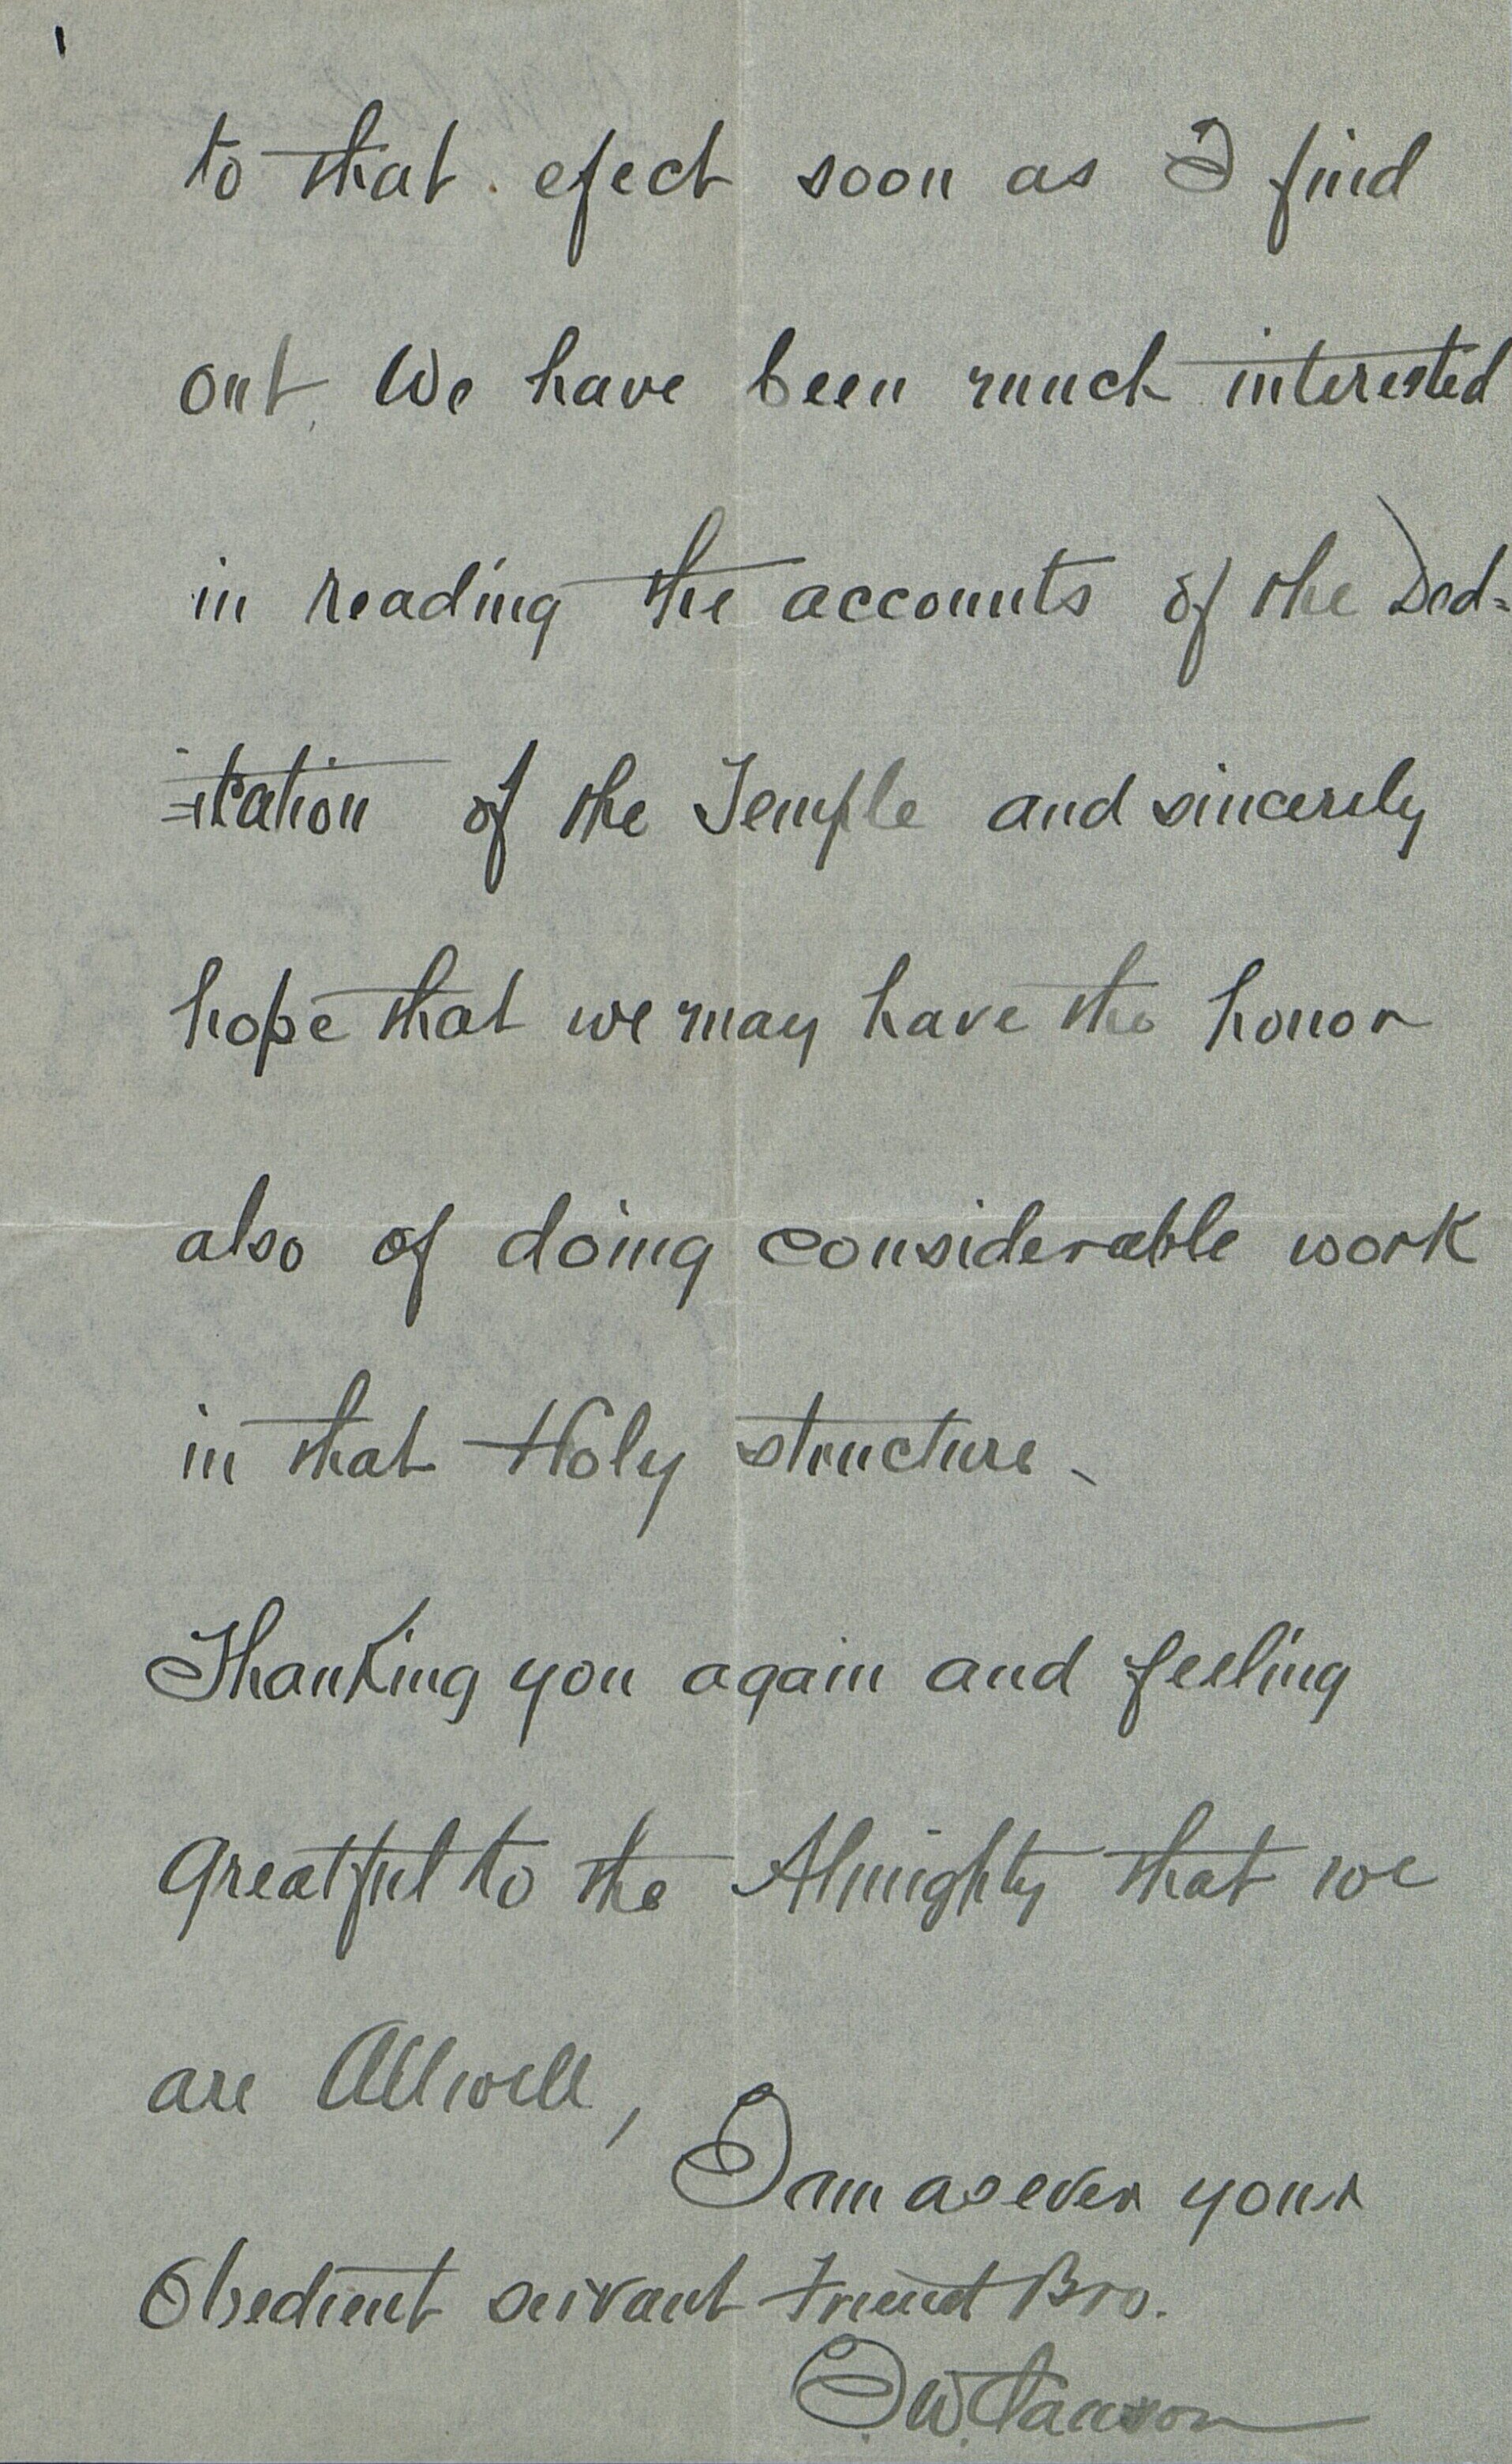 to that efect soon as I find
out. We have been much interested
in reading the accounts of the Ded=
=ication of the Temple and sincerely
hope that we may have the honor
also of doing considerable work
in that Holy structure.
Thanking you again and feeling
greatful to the Almighty that we
are All well,
I am as ever your
Obedient servant Friend Bro.